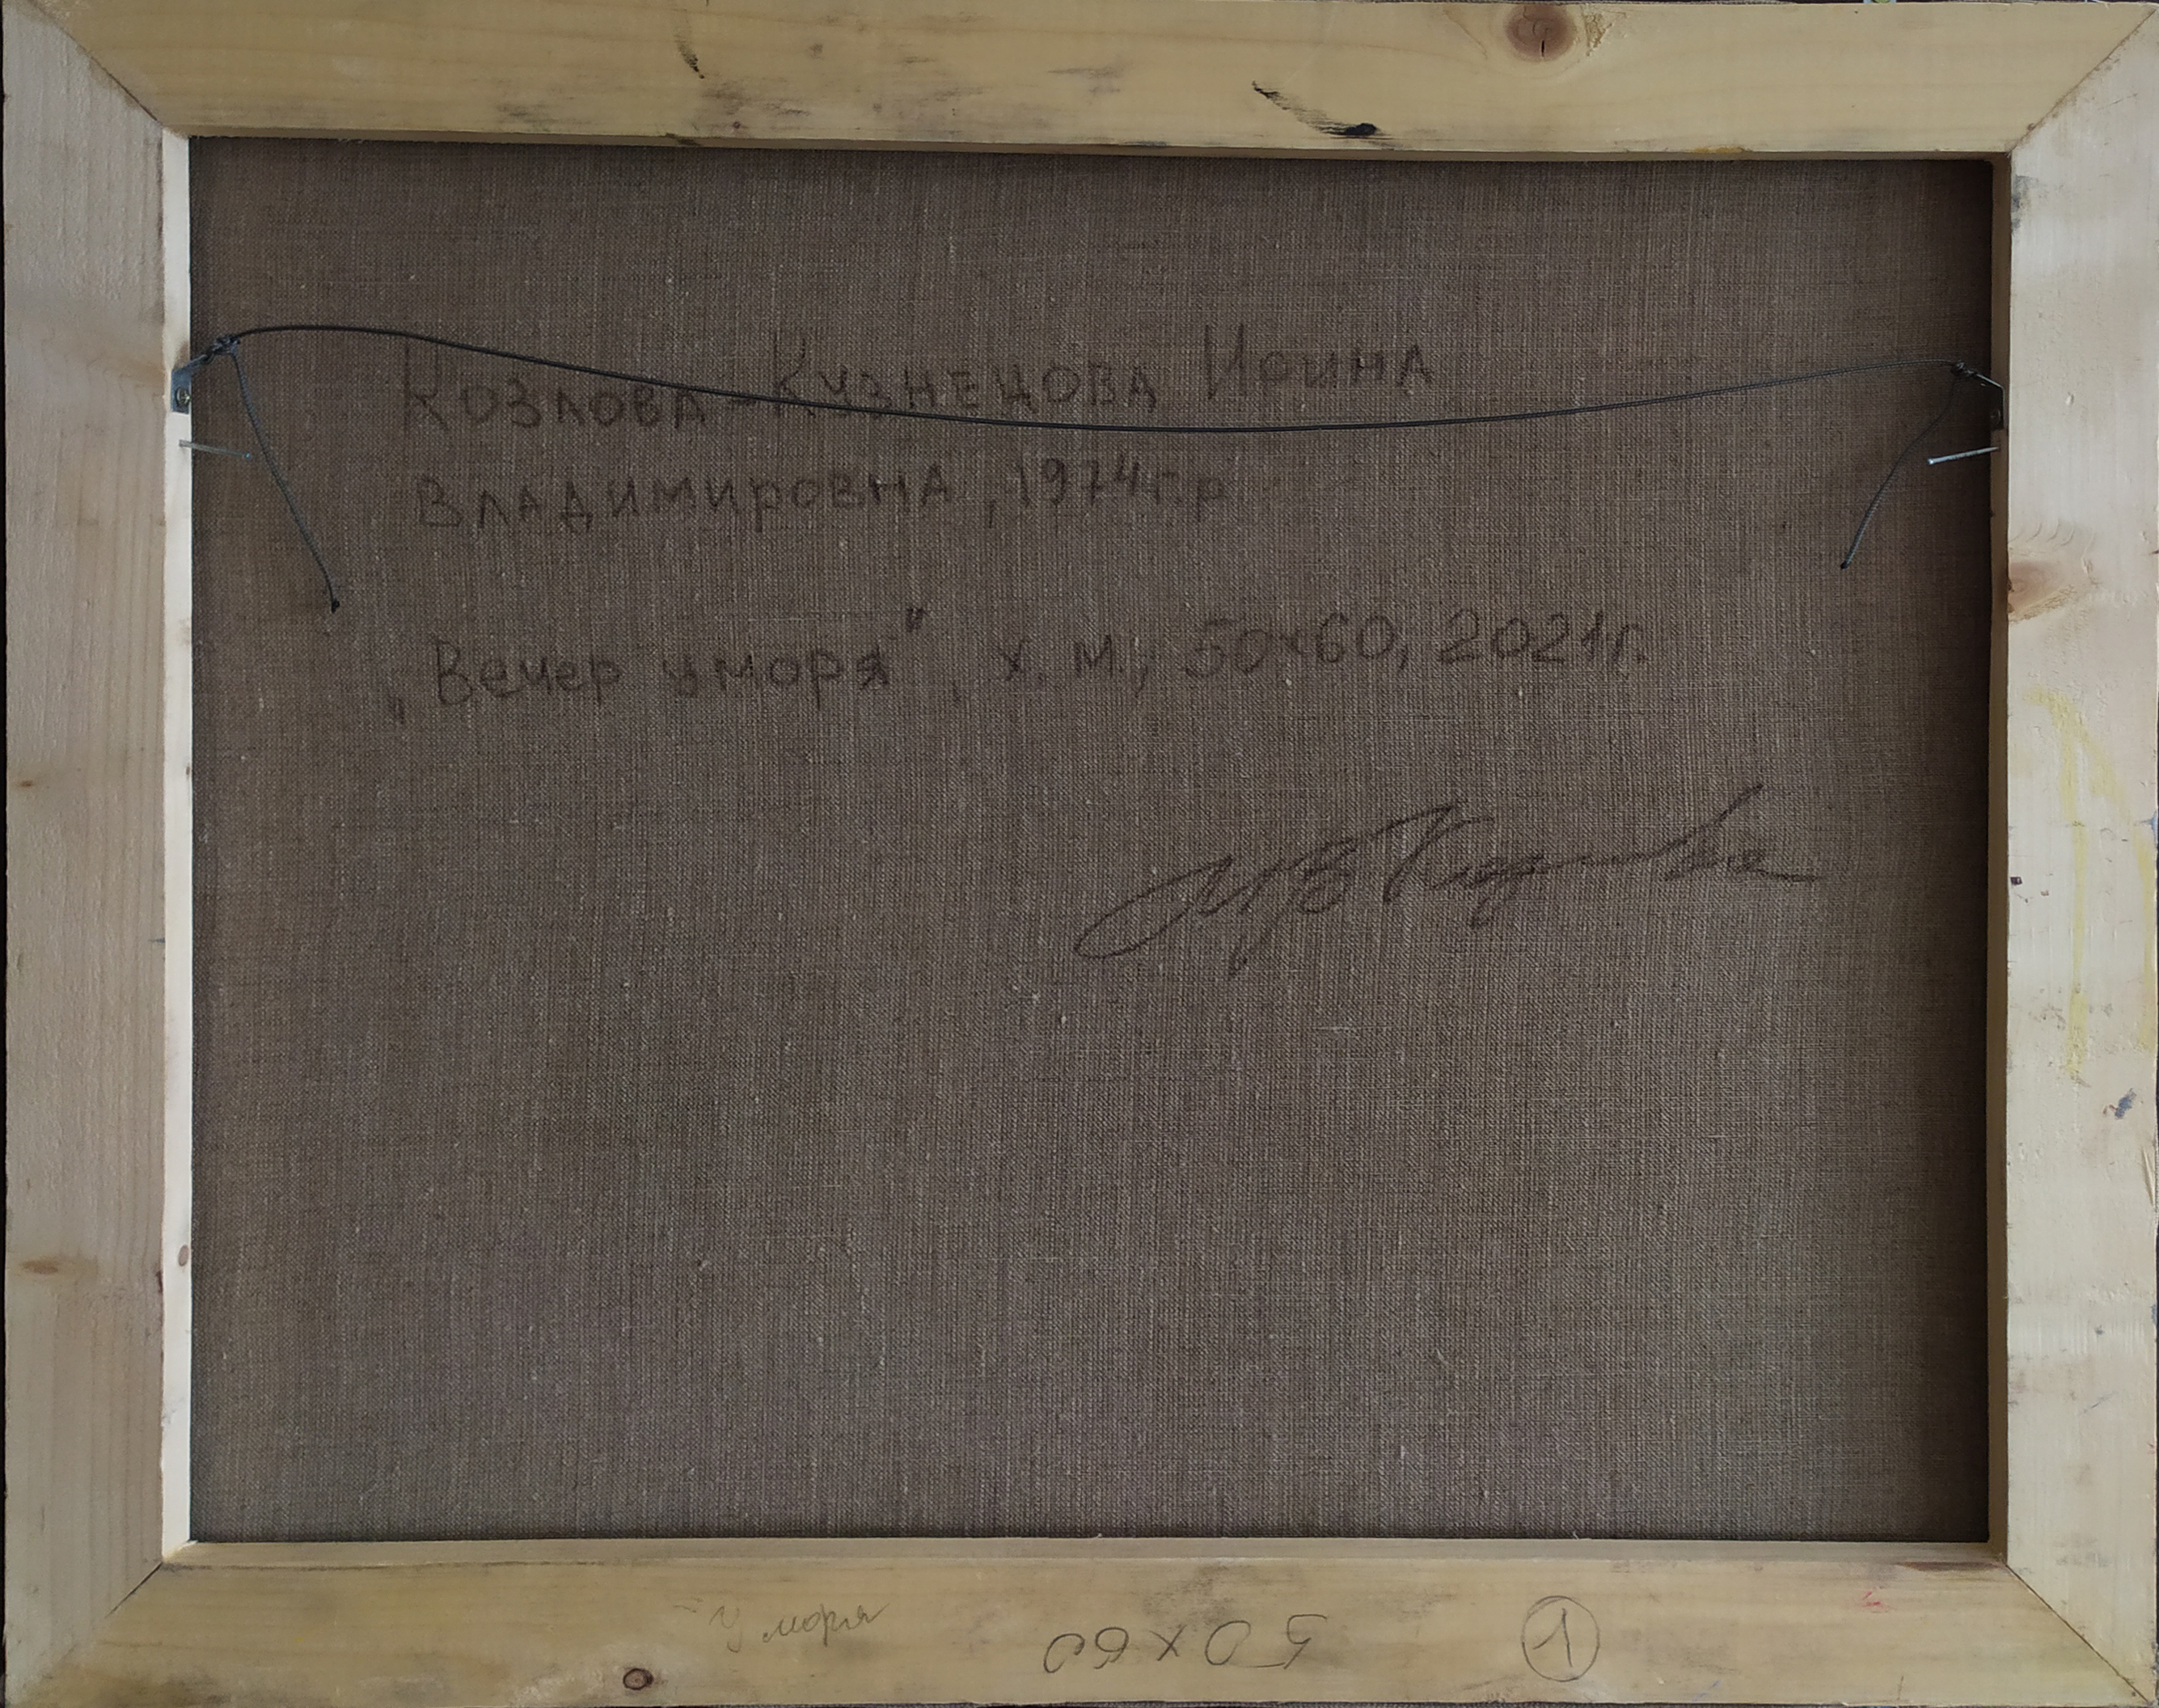 Козлова-Кузнецова Ирина
Владимировна, 1974г.р.
„Вечер у моря", х.м., 50x60, 2021г.
У моря
50x60
1